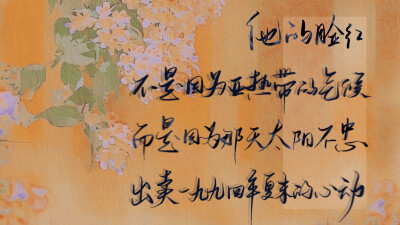 他的脸红
不是因为亚热带的气候
而是因为那天太阳不忠
出卖一九九四年夏末的心动